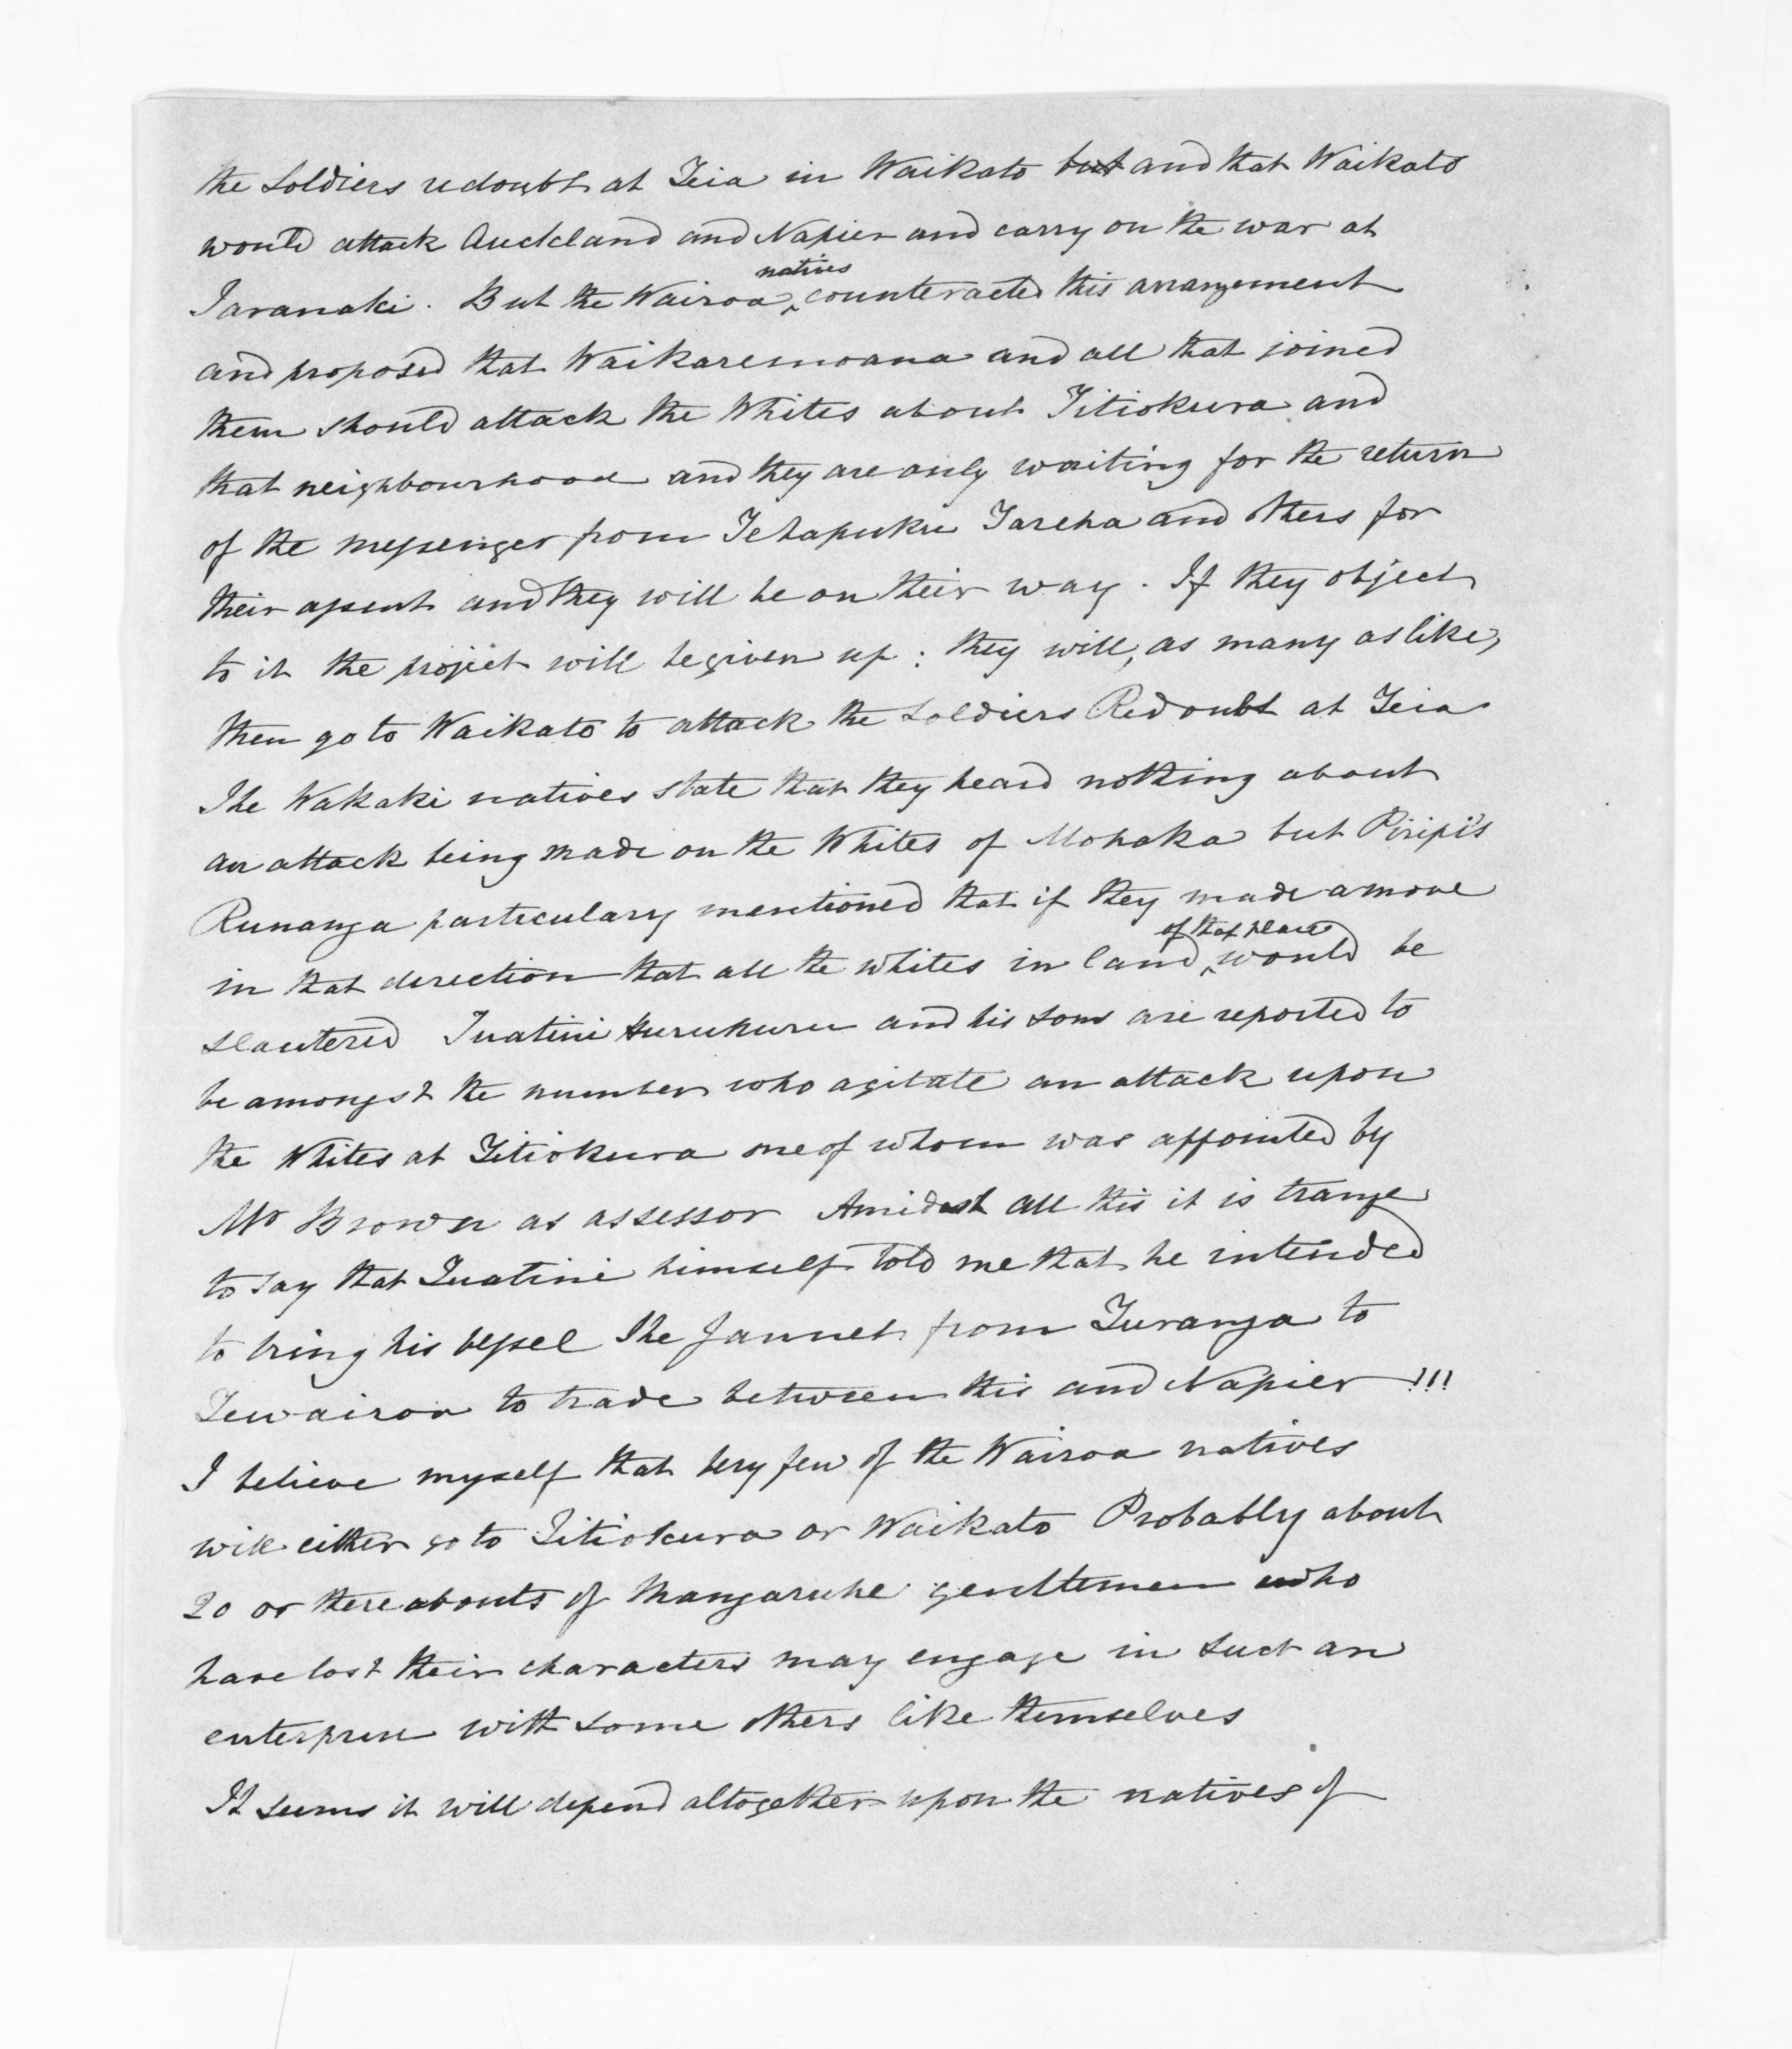 the Soldiers redoubt at Teia in Waikato but and that Waikato
would attack Auckland and Napier and carry on the war at
Taranaki. But the Wairoa natives counteracted this arrangement
and proposed that Waikaremoana and all that joined
them should attack the Whites about Titiokura and
that neighbourhood and they are only waiting for the return
of the messenger from Tehapuku Tareha and others for
their assent and they will be on their way. If they object
to it the project will be given up: they will, as many as like,
then go to Waikato to attack the Soldiers Redoubt at Teia
The Wakaki natives state that they heard nothing about
an attack being made on the Whites of Mohaka but Piripi's
Runanga particulary mentioned that if they made a move
in that direction that all the whites in land of that place would be
slautered Tuatini hurukuru and his sons are reported to
be amongst the number who agitate an attack upon
the Whites at Titiokura one of whom was appointed by
Mr Brown as assessor Amidst all this it is trange
to say that Tuatini himself told me that he intended
to bring his vessel The Jannet from Turanga to
Tewairoa to trade between this and Napier !!!
I believe myself that very few of the Wairoa natives
will either go to Titiokura or Waikato Probably about
20 or thereabouts of Mangaruhe gentlemen who
have lost their characters may engage in such an
enterprise with some others like themselves
It seems it will depend altogether upon the natives of